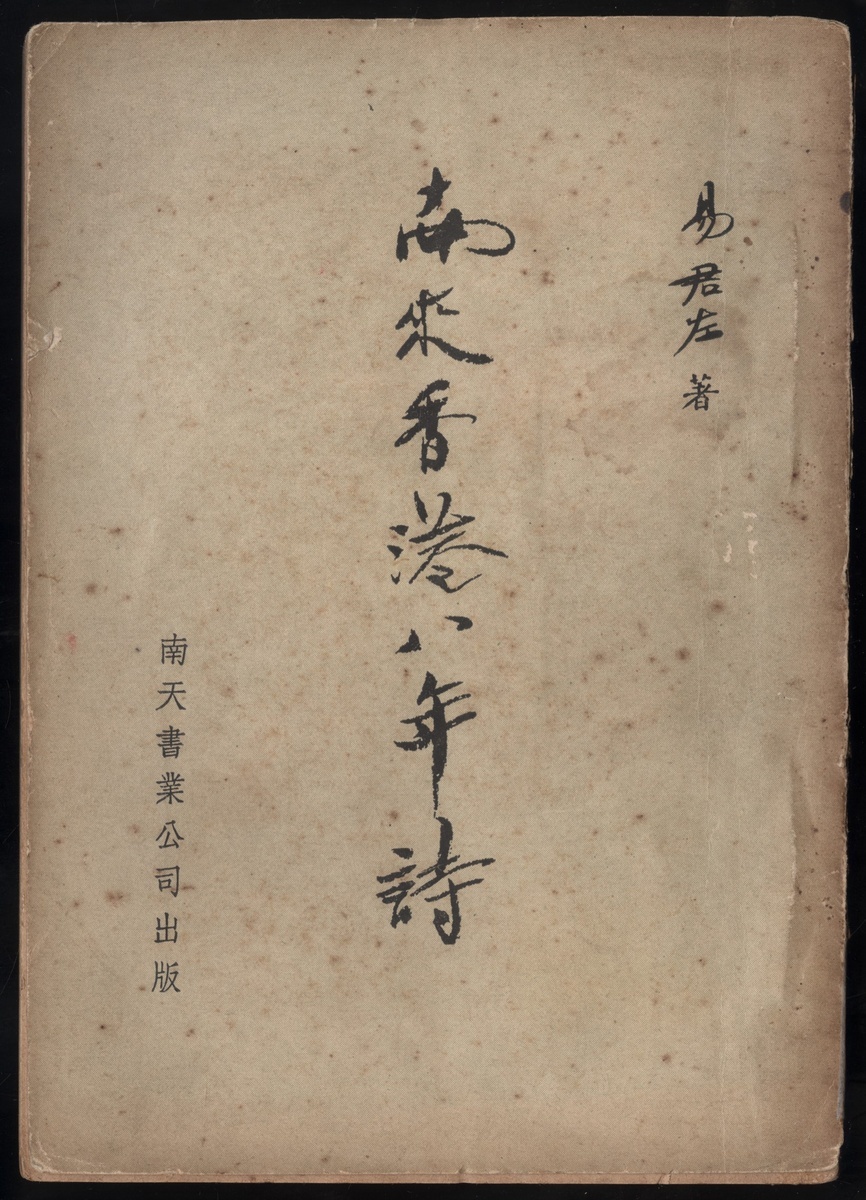 易君左著
南來香港八年詩
南天書業公司出版